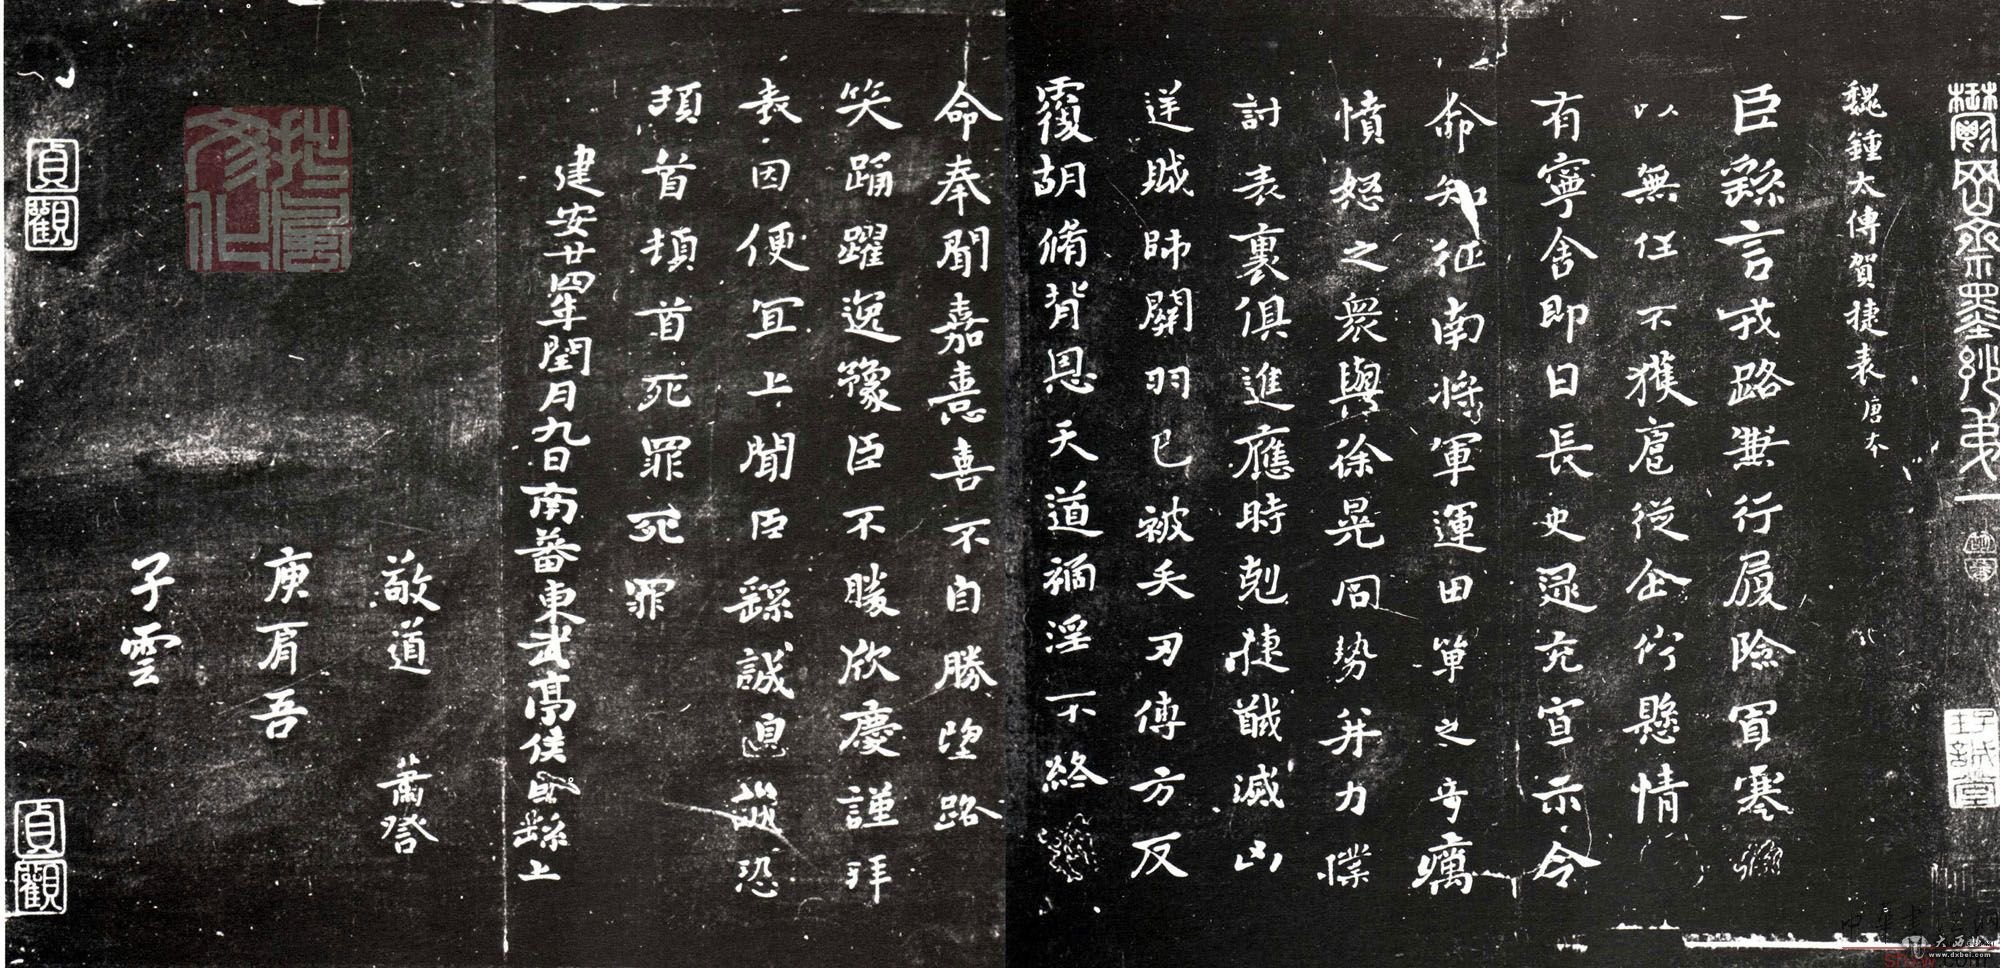 鬱岡齋墨妙第一
魏鍾太傅賀捷表唐本
臣繇言戎路兼行履險冒寒
以無任不獲扈從企佇懸情
有寧舍即日長史逯充宣示令
命知征南將軍運田單之奇厲
憤怒之衆與徐晃同勢并力撲
討表裏俱進應時剋捷馘滅凶
逆賊帥關羽已被矢刃傅方反
覆胡脩背恩天道禍淫不終
命奉聞嘉憙喜不自勝望路
笑踊躍逸豫臣不勝欣慶謹拜
表因便宜上聞臣繇誠惶誠恐
頓首頓首死罪死罪
建安廿四年閏月九日南蕃東武亭侯臣繇上
敬道 蕭詧
庾肩吾
子雲
貞觀
貞觀
大西北
www.dxbei.com